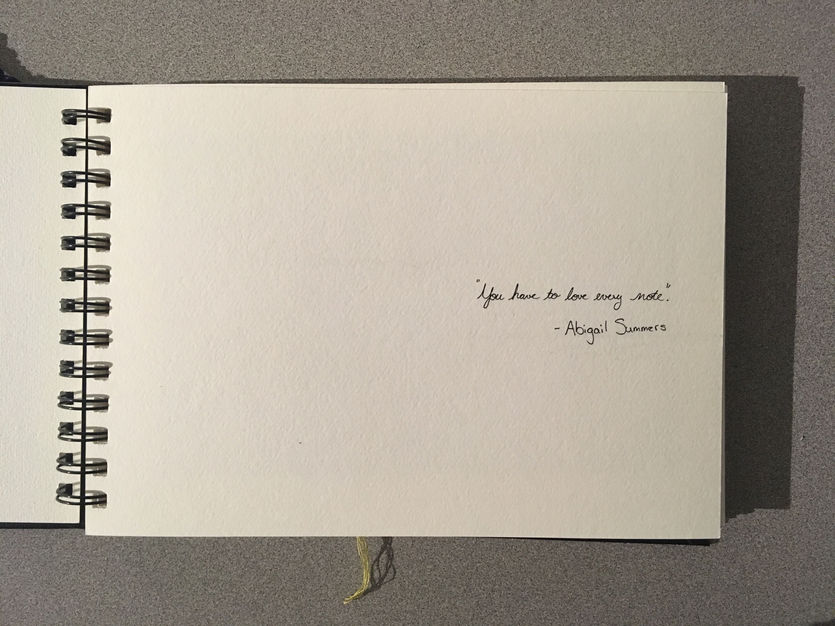 "You have to love every note".
- Abigail Summers